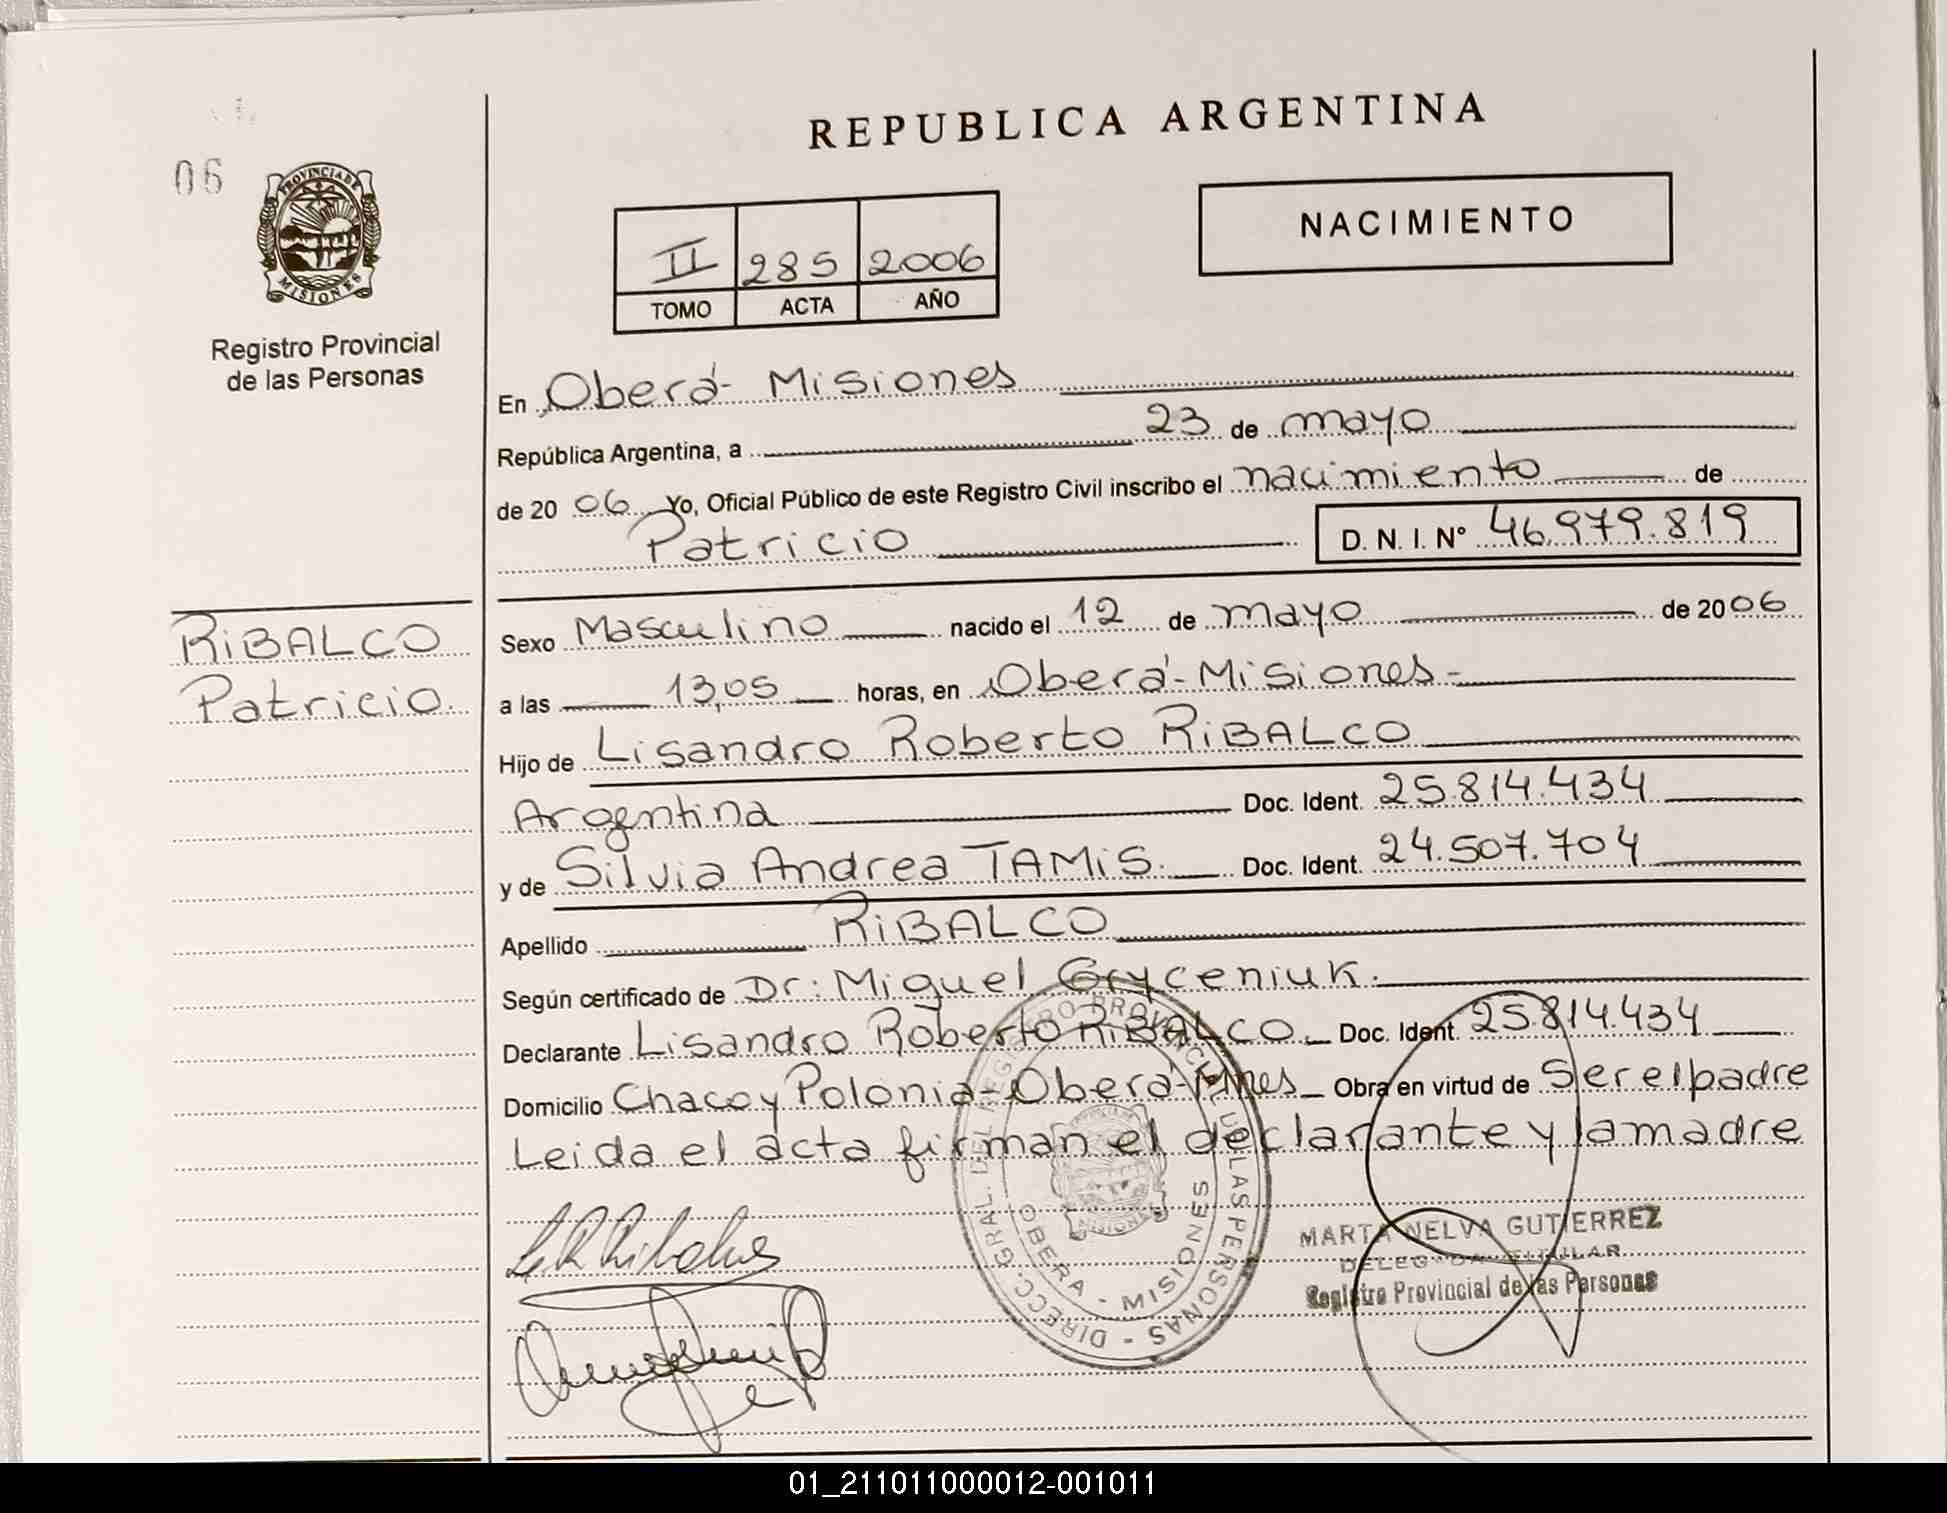 REPUBLICA ARGENTINA
06
PROVINCIA DE
MISIONES
NACIMIENTO
II 285 2006
TOMO ACTA AÑO
Registro Provincial
de las Personas
En Oberá - Misiones
República Argentina, a 23 de mayo
de 20 06 Yo, Oficial Público de este Registro Civil inscribo el nacimiento de
Patricio D. N. I. Nº 46.979.819
RiBALCO
Patricio.
Sexo Masculino nacido el 12 de mayo de 20 06
a las 13,05 horas, en Oberá - Misiones -
Hijo de Lisandro Roberto RiBALCO
Argentina Doc. Ident. 25.814.434
y de Silvia Andrea TAMiS. Doc. Ident. 24.507.704
Apellido RiBALCO
Según certificado de Dr: Miguel Gryceniuk.
Declarante Lisandro Roberto RiBALCO Doc. Ident. 25.814.434
Domicilio Chaco y Polonia - Oberá - Mnes Obra en virtud de Ser el padre
Leida el acta firman el declarante y la madre
DIRECC. GRAL. DEL REGISTRO PROVINCIAL DE LAS PERSONAS -
OBERA - MISIONES
MISIONES
MARTA NELVA GUTIERREZ
DELEGADA TITULAR
Registro Provincial de las Personas
01_211011000012-001011